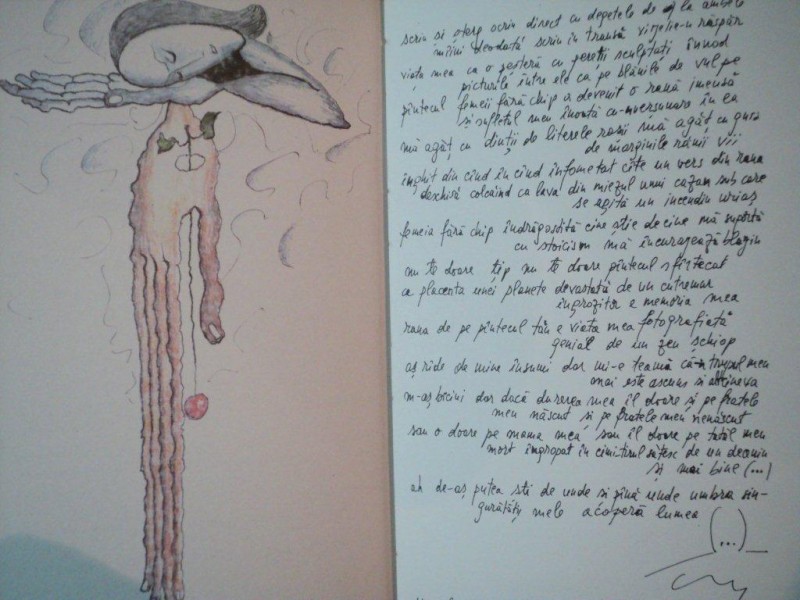 scriu și șterg scriu direct cu degetele de la ambele
mîini deodată scriu în transă vijelie-n răspăr
viața mea ca o peșteră cu pereții sculptați înnod
picturile între ele ca pe blănile de vulpe
pîntecul femeii fără chip a devenit o rană imensă
și sufletul meu înoată cu-nverșunare în ea
mă agăț cu dinții de literele rănii mă agăț cu gura
de marginile rănii vii
înghit din cînd în cînd înfometat cîte un vers din rana
deschisă colcăind ca lava din miezul unui cazan sub care
se agită un incendiu uriaș
femeia fără chip îndrăgostită cine știe de cine mă suportă
cu stoicism mă încurajează blajin
nu te doare țip nu te doare pîntecul sfîrtecat
ca placenta unei planete devastată de un cutremur
îngrozitor e memoria mea
rana de pe pîntecul tău e viața mea fotografiată
genial de un zeu șchiop
aș rîde de mine însumi dar mi-e teamă că-n trupul meu
mai este ascuns și altcineva
m-aș biciui dar dacă durerea mea îl doare și pe fratele
meu născut și pe fratele meu nenăscut
sau o doare pe mama mea sau îl doare pe tatăl meu
mort îngropat în cimitirul sătesc de un deceniu
și mai bine (...)
ah de-aș putea ști de unde și pînă unde umbra sin-
gurătății mele acoperă lumea
(...)